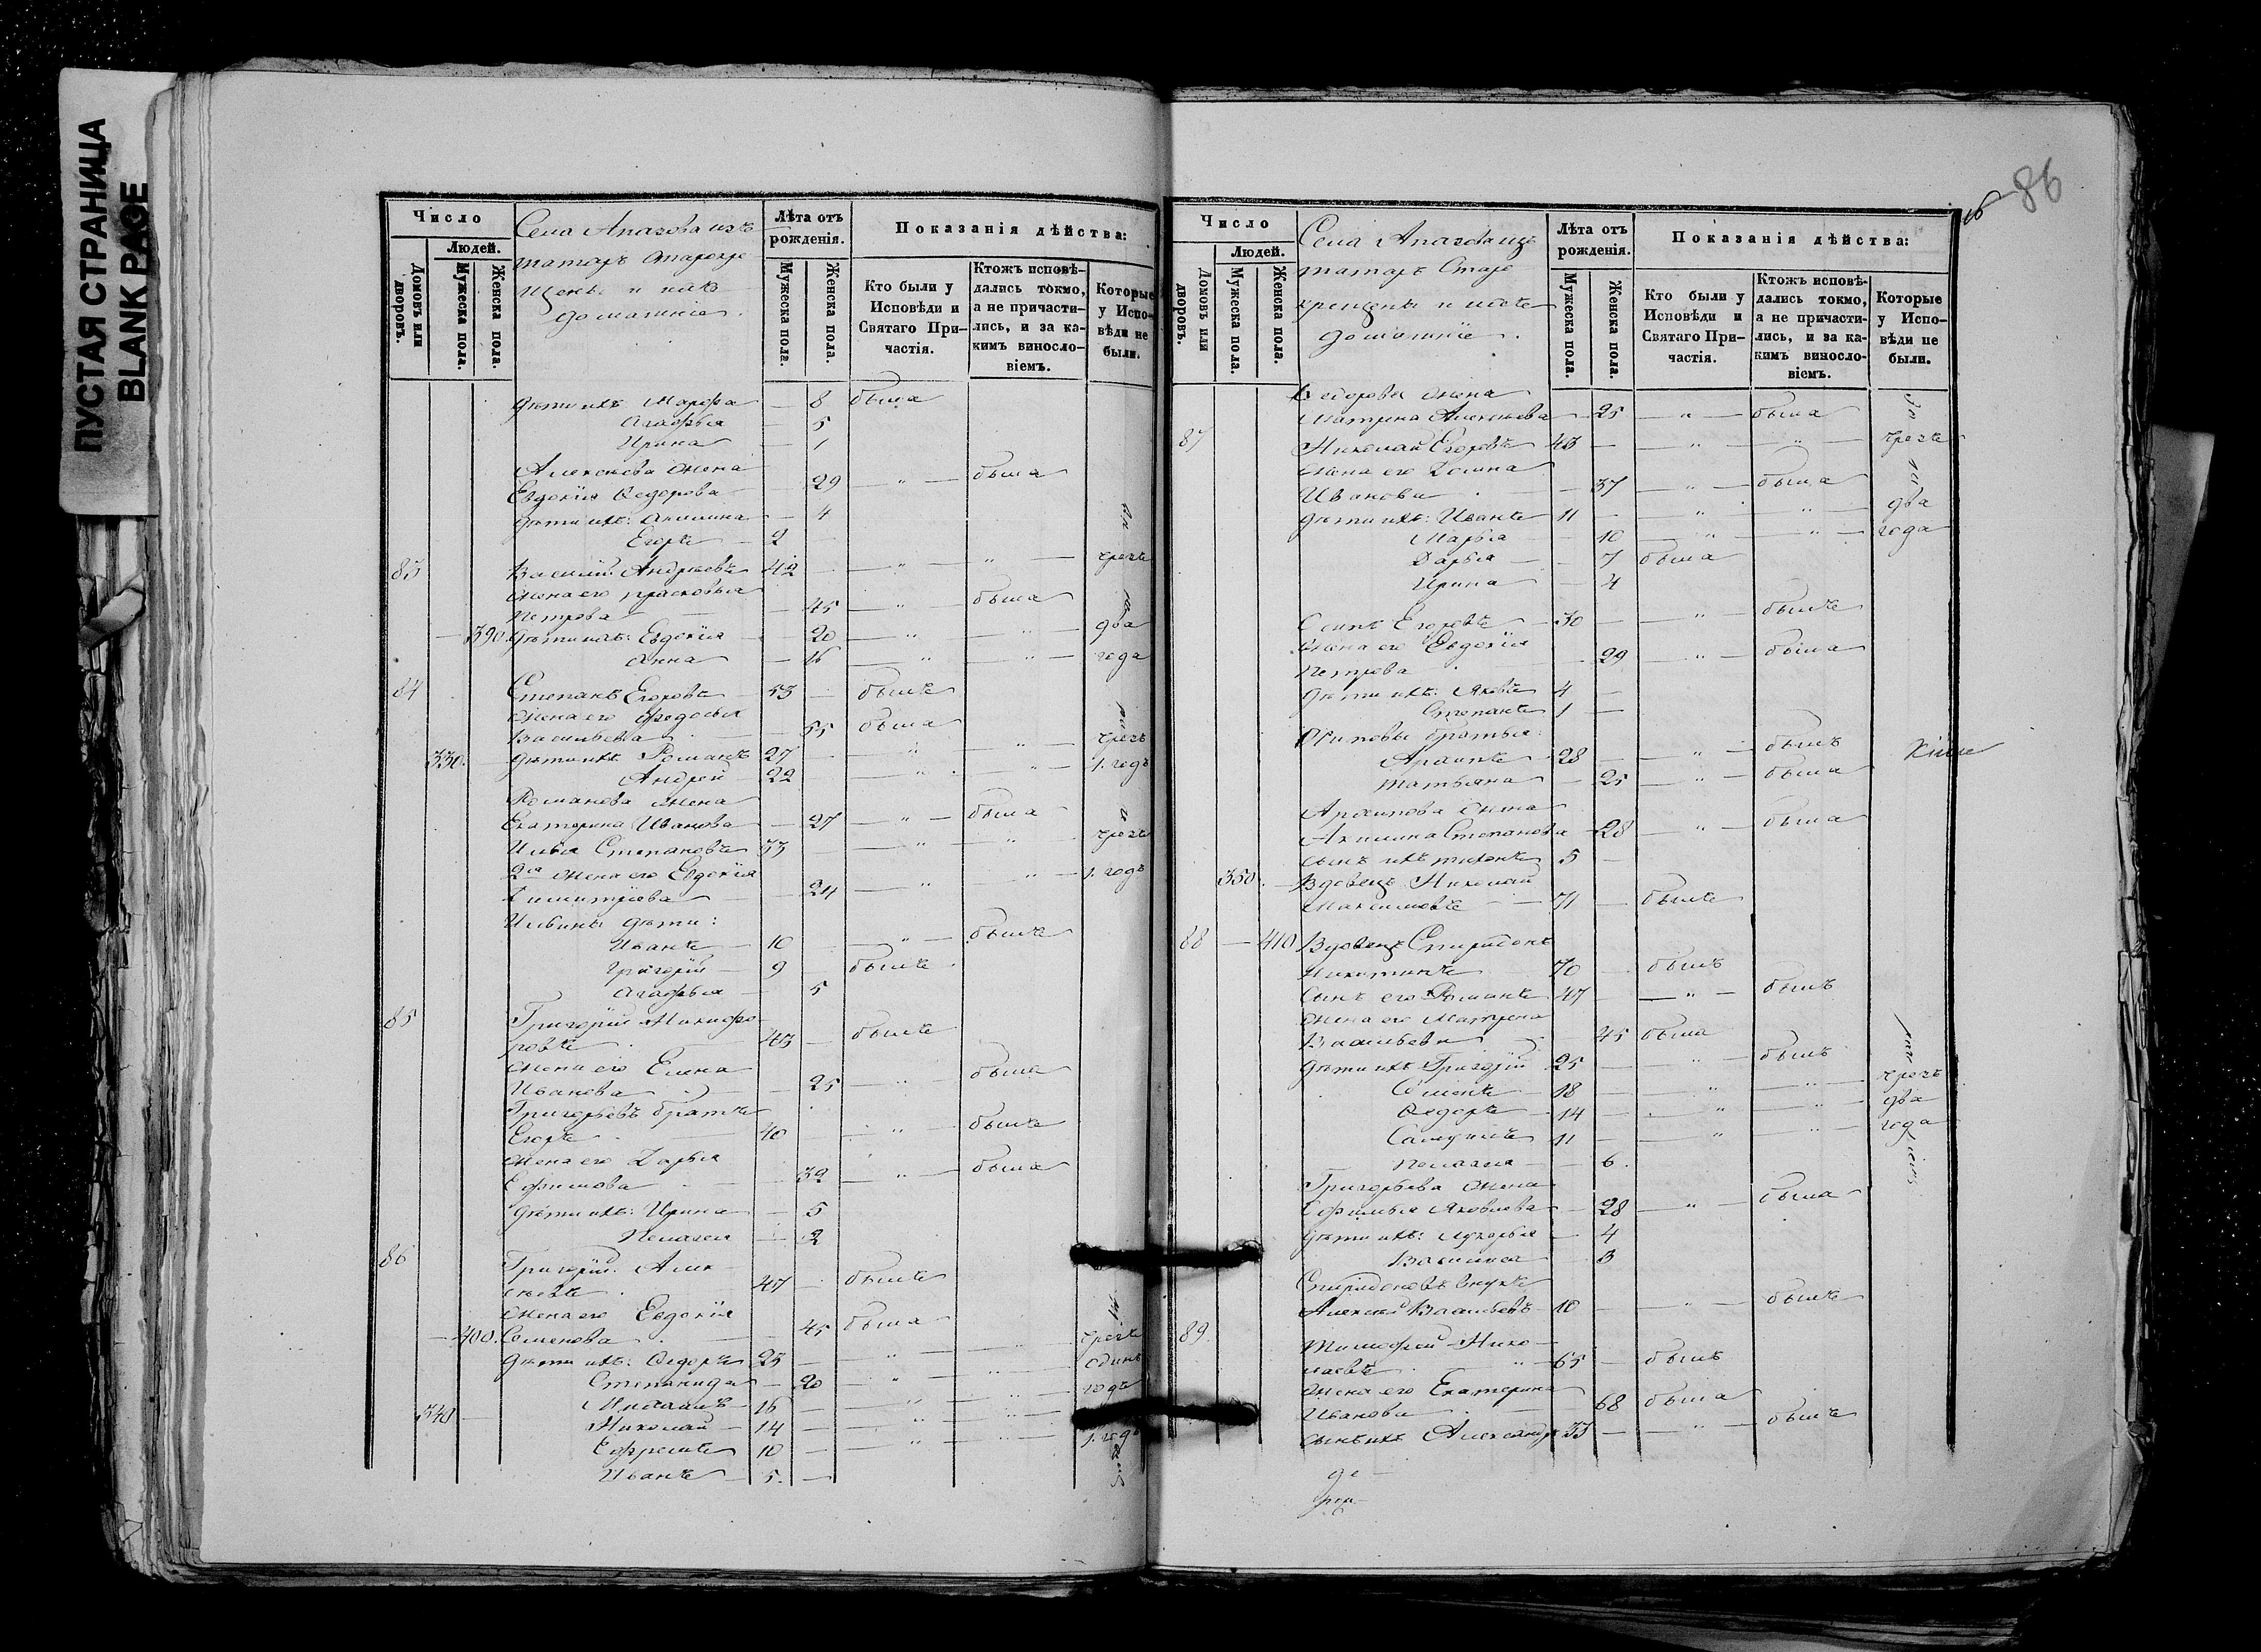 ПУСТАЯ СТРАНИЦА
BLANK PAGE
Число
Людей.
Домовъ или дворовъ.
Мужеска пола.
Женска пола.
Села Апазова изъ
татаръ старокре
щены и ихъ
домашніе.
Лѣта отъ рожденія.
Мужеска пола.
Женска пола.
Показанія дѣйства:
Кто были у Исповѣди и Святаго При-частія.
Ктожъ исповѣ-дались токмо, а не причасти-лись, и за ка-кимъ винносло-віемъ.
Которые у Испо-вѣди не были.
дѣти ихъ Марфа — 8 была
Агафья — 5
Ирина — 1
Алексѣева жена
Евдокія Ѳедорова 29 — " — была
дѣти ихъ: Акилина — 4
Егоръ — 2
83 Василій Андреевъ 42 — " — " — чрезъ
жена его Прасковья
Петрова — 45 — " — была
— 390. дѣти ихъ: Евдокія — 20 — " — " — два
Анна — 16 — " — " — года
84 Степанъ Егоровъ 53 — былъ
жена его Ѳедосья
Васильева 55 была
330. дѣти ихъ Романъ 27 — " — " — чрезъ
Андрей 22 — " — " — 1. годъ
Романова жена
Екатерина Иванова — 27 — " — была
Илья Степановъ 33 — " — " чрезъ
2я жена его Евдокія
Димитріева — 24 — " — " — 1. годъ
Ильины дѣти:
Иванъ — 10 — " — былъ
Григорій — 9 — былъ
Агафья — 5
85 Григорій Никифо-
ровъ 43 — былъ
жена его Елена
Иванова 25 — " — была
Григорьевъ братъ
Егоръ 40 — " — былъ
жена его Дарья
Ефимова 32 — " — была
дѣти ихъ: Ирина — 5
Пелагея — 2
86 Григорій Алек-
сѣевъ 47 — былъ
жена его Евдокія
— 400. Семенова 45 была
дѣти ихъ: Ѳедоръ 23 — " — " — чрезъ
Степанида — 20 — " — " — одинъ
Михаилъ 16 — " — " — годъ
340 — Николай — 14 — " — "
Ефремъ 10 — " — " — 1. годъ
Иванъ — 5. —
86
Число
Людей.
Домовъ или дворовъ.
Мужеска пола.
Женска пола.
Села Апазова изъ
татаръ старо
крещены и ихъ
домашніе.
Лѣта отъ рожденія.
Мужеска пола.
Женска пола.
Показанія дѣйства:
Кто были у Исповѣди и Святаго При-частія.
Ктожъ исповѣ-дались токмо, а не причасти-лись, и за ка-кимъ виносло-віемъ.
Которые у Испо-вѣди не были.
Ѳедорова жена
Матрена Алексѣева — 25 — " — была
87 Николай Егоровъ 43 — " — " — чрезъ
жена его Домна
Иванова — 37 — " — была
дѣти ихъ: Иванъ 11 — " — " — два
Марья — 10 — " — " — года
Дарья — 7 была
Ирина — 4
Осипъ Егоровъ — 30 — " — былъ
жена его Евдокія
Петрова 29 — " — была
дѣти ихъ: Яковъ 4 —
Степанъ 1 —
Осиповы братья:
Архипъ — 28 — " — былъ
Татьяна — 25 — " — была
Архипова жена
Акилина Степанова — 28 — " — была
сынъ ихъ Тихонъ 5 —
350. — Вдовецъ Николай
Максимовъ — 71 — былъ
88 — 410 Вдовецъ Спиридонъ
Никитинъ 70 — былъ
Сынъ его Романъ 47 — " — былъ
жена его Матрена
Васильева 45 была
дѣти ихъ Григорій 25 — " — былъ
Семенъ — 18 — " — " — чрезъ
Ѳедоръ — 14 — " — " — два
Самуилъ 11 — " — " — года
Пелагея — 6.
Григорьева жена
Софимья Яковлева — 28 — " — была
дѣти ихъ: — 4
Василиса — 3
Спиридоновъ внукъ
Алексѣй Васильевъ — 10 — " — былъ
89. Тимофей Нико-
лаевъ — 65 — былъ
жена его Екатерина
Иванова 68 была
сынъ ихъ Александръ 33 — " — былъ